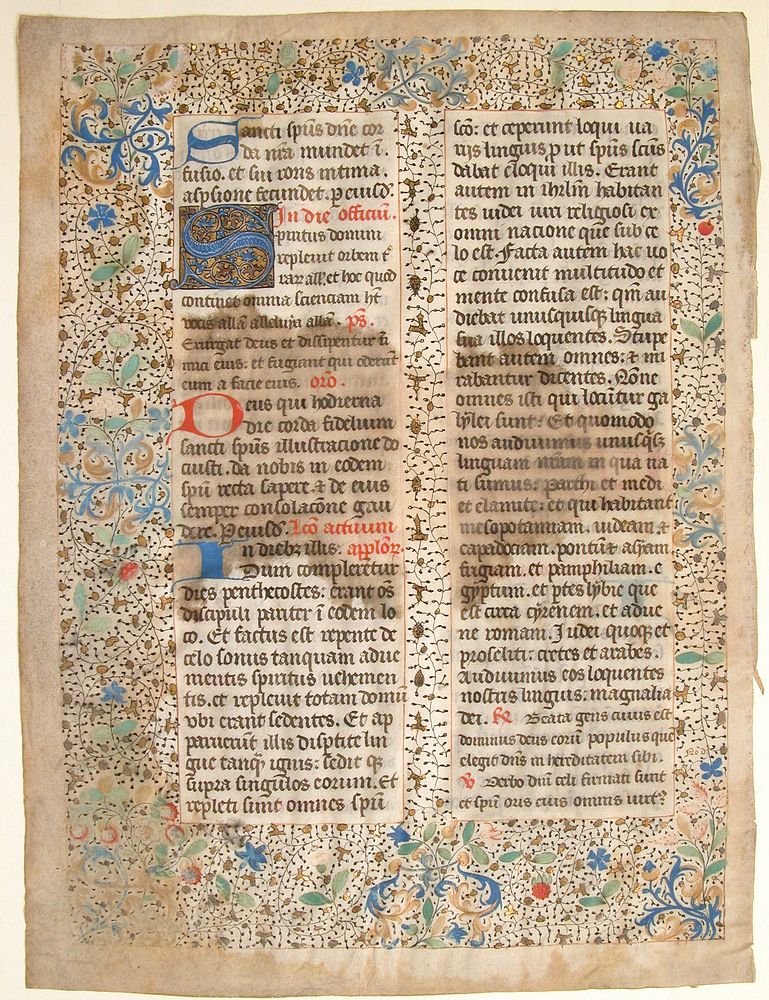 Sancti spūs dñe cor
da nr̃a mundet ī
fusio. et sui roris intima
aspsione fecundet. P eiusd̄.
In die officiū.
Spiritus domini
repleuit orbem t̄
rar̄ all̄. et hoc quod
continet omnia scienciam hȳ
uocis allā alleluya allā. p̄s.
Exurgat deus et dissipentur ī
mici eius: et fugiant qui oderūt
eum a facie eius. orō.
Deus qui hodierna
die corda fidelium
sancti spūs illustracione do
cuisti. da nobis in eodem
spū recta sapere & de eius
semper consolacōne gau
dere. P eiusd̄. Lcō actuum
In diebꝫ illis. apl̄oꝝ.
Dum complerētur
dies penthecostes: erant oēs
discipuli pariter ī eodem lo
co. Et factus est repente de
celo sonus tanquam adue
nientis spiritus uehemen
tis. et repleuit totam domū
vbi erant sedentes. Et ap
paruerūt illis disptite lin
gue tanqꝫ ignis: sedit qꝫ
supra singulos eorum. Et
repleti sunt omnes spū
scō: et ceperunt loqui ua
rijs linguis p̄ ut spūs scūs
dabat eloqui illis. Erant
autem in ihrl̄m habitan
tes iudei uiri religiosi ex
omni nacione que sub ce
lo est. Facta autem hac uo
ce conuenit multitudo et
mente confusa est: qm̄ au
diebat unusquisqꝫ lingua
sua illos loquentes. Stupe
bant autem omnes: & mi
rabantur dicentes. Nōne
omnes isti qui locūtur ga
lylei sunt: Et quomodo
nos audiuimus unusqīsqꝫ
linguam nr̄am in qua na
ti sumus: Parthi et medi
et elamite: et qui habitant
mesopotamiam. iudeam &
capadociam. pontū & asyam
frigiam. et pamphiliam. e
gyptum. et p̄tes lybie que
est circa cyrenem. et adue
ne romani. Iudei quoqꝫ et
proseliti: cretes et arabes.
Audiuimus eos loquentes
nostris linguis: magnalia
dei. ℟ Beata gens cuius est
dominus deus eorū populus que
elegit dn̄s in hereditatem sibi.
℣ Verbo dn̄i celi firmati sunt
et spū oris eius omnis uirt᷒